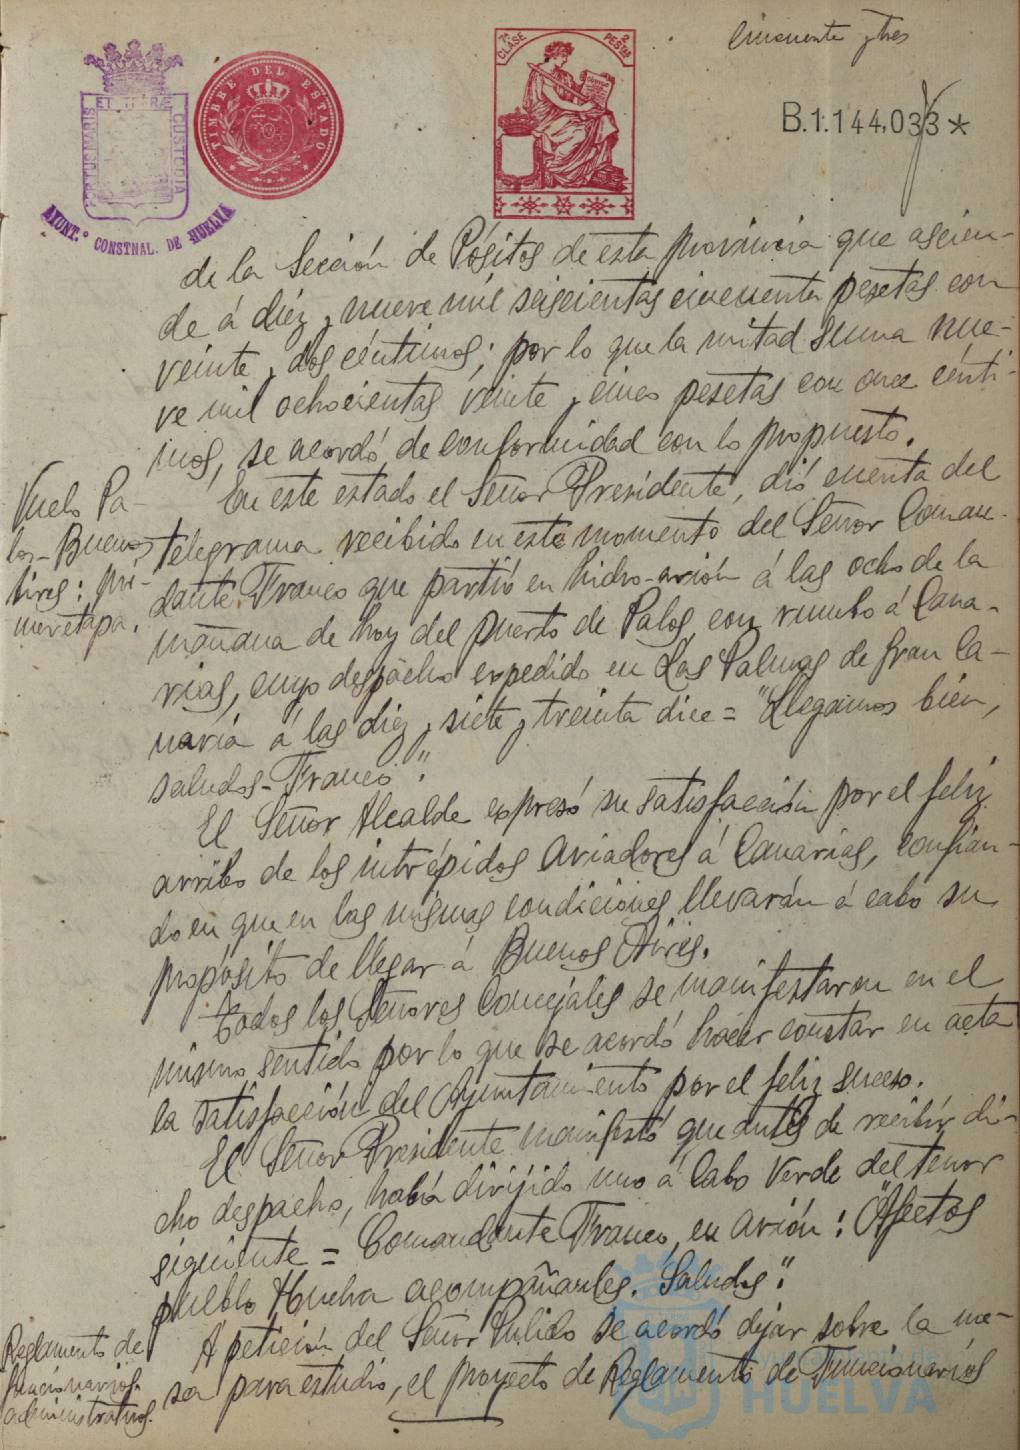 Cincuenta y tres
7ª CLASE 2 PESTAS
TIMBRE DEL ESTADO
B.1.144,033*
PORTUS MARIS ET TERRÆ CUSTODIA
AYUNT.º CONSTNAL. DE HUELVA
de la Sección de Pósitos de esta provincia que ascien-
de á diez y nueve mil seiscientas cincuenta pesetas con
veinte y dos céntimos; por lo que la mitad suma nue-
ve mil ochocientas veinte y cinco pesetas con once cénti-
mos, se acordó de conformidad con lo propuesto.
Vuelo Pa-
los-Buenos
Aires: pri-
mer etapa.
En este estado el Señor Presidente, dió cuenta del
telegrama recibido en este momento del Señor Coman-
dante Franco que partió en hidro-avión á las ocho de la
mañana de hoy del puerto de Palos con rumbo á Cana-
rias, cuyo despacho expedido en Las Palmas de Gran Ca-
naria á las diez y siete y treinta dice = "Llegamos bien,
saludos-Franco".
El Señor Alcalde expresó su satisfacción por el feliz
arribo de los intrépidos aviadores á Canarias, confian-
do en que en las mismas condiciones llevarán á cabo su
propósito de llegar á Buenos Aires.
Todos los Señores Concejales se manifestaron en el
mismo sentido por lo que se acordó hacer constar en acta
la satisfacción del Ayuntamiento por el feliz suceso.
El Señor Presidente manifestó que antes de recibir di-
cho despacho, había dirijido uno á Cabo Verde del tenor
siguiente = Comandante Franco, en avión: "Afectos
pueblo Huelva acompañanles. Saludos".
Reglamento de
funcionarios
administrativos.
A petición del Señor Pulido se acordó dejar sobre la me-
sa para estudio, el proyecto de Reglamento de Funcionarios
Ayuntamiento de
HUELVA